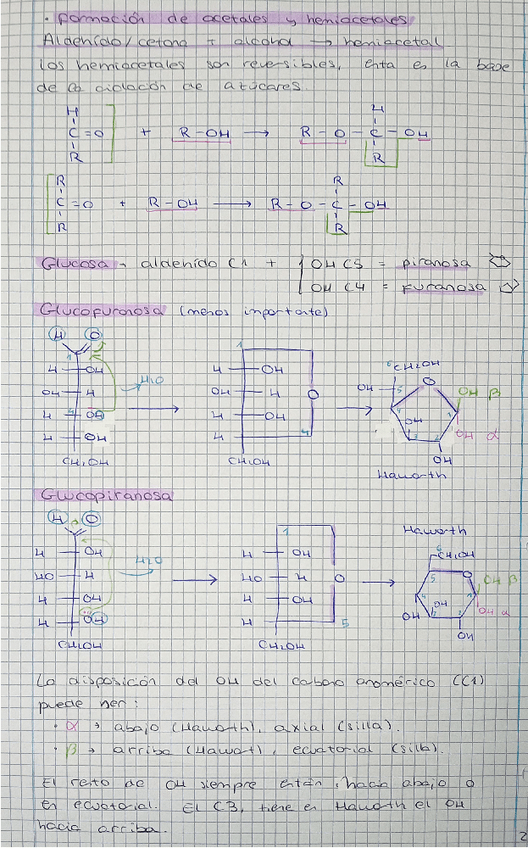 · Formación de acetales y hemiacetales
Aldehído/cetona + alcohol → hemiacetal
Los hemiacetales son reversibles, esta es la base
de la ciclación de azúcares.
H
C=O + R-OH → R-O-C-OH
H
R
R
R
C=O + R-OH → R-O-C-OH
R
R
R
Glucosa → aldehído C1 + { OH C5 = piranosa
OH C4 = furanosa
Glucofuranosa (menos importante)
H O
1
H OH
OH H
4 OH
H OH
CH2OH
H2O
1
H OH
OH H
H OH
H 4
O
CH2OH
6CH2OH
OH 5
O
OH β
OH
OH α
OH
Haworth
Glucopiranosa
H O
H OH
HO H
H OH
H OH
CH2OH
H2O
1
H OH
HO H
H OH
H 5
O
CH2OH
Haworth
6CH2OH
5 O
OH β
OH
OH α
OH
OH
La disposición del OH del carbono anomérico (C1)
puede ser:
· α → abajo (Haworth), axial (silla).
· β → arriba (Hawort), ecuatorial (silla).
El resto de OH siempre están hacia abajo o
en ecuatorial. El C3, tiene en Haworth el OH
hacia arriba.
2